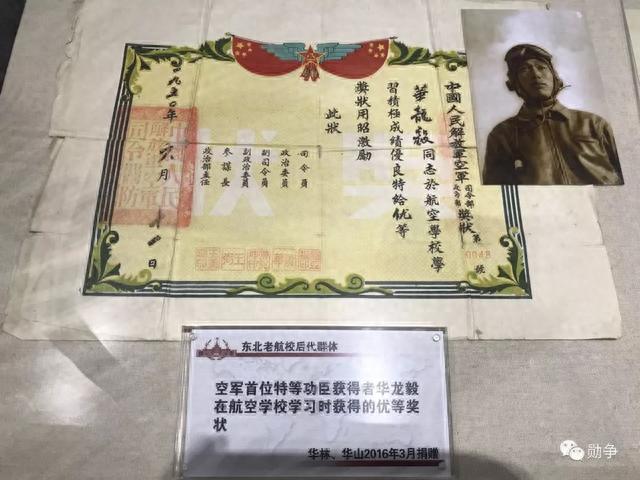 中國人民解放軍空軍司令部政治部獎狀第0048號
華龍毅同志於航空學校學
習積極成績優良特給優等
獎狀用昭激勵
此狀
司令員
政治委員
副司令員
副政治委員
參謀長
政治部主任
一九五〇年
月
日
獎狀
东北老航校后代群体
空军首位特等功臣获得者华龙毅
在航空学校学习时获得的优等奖
状
华林、华山2016年3月捐赠
勋争